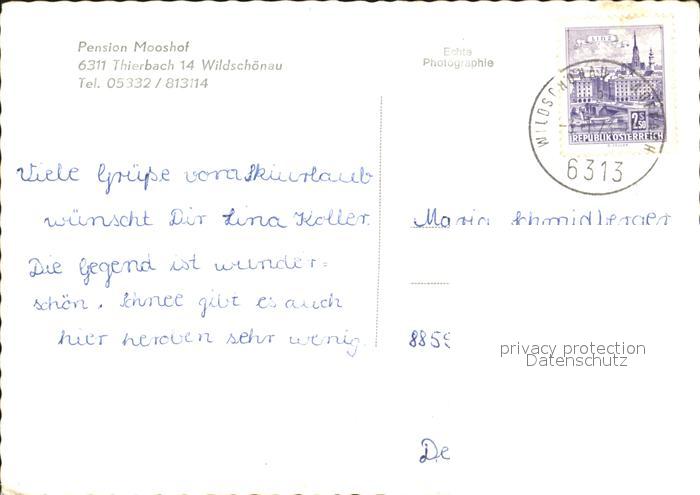 Pension Mooshof
6311 Thierbach 14 Wildschönau
Tel. 05332 / 813114
Echte
Photographie
LINZ
2.50
REPUBLIK ÖSTERREICH
WILDSCHÖNAU
6313
Viele Grüße vom Skiurlaub
wünscht Dir Lina Koller.
Die Gegend ist wunder=
schön. Schnee gibt es auch
hier heroben sehr wenig.
Maria Schmidberger
8859
privacy protection
Datenschutz
De